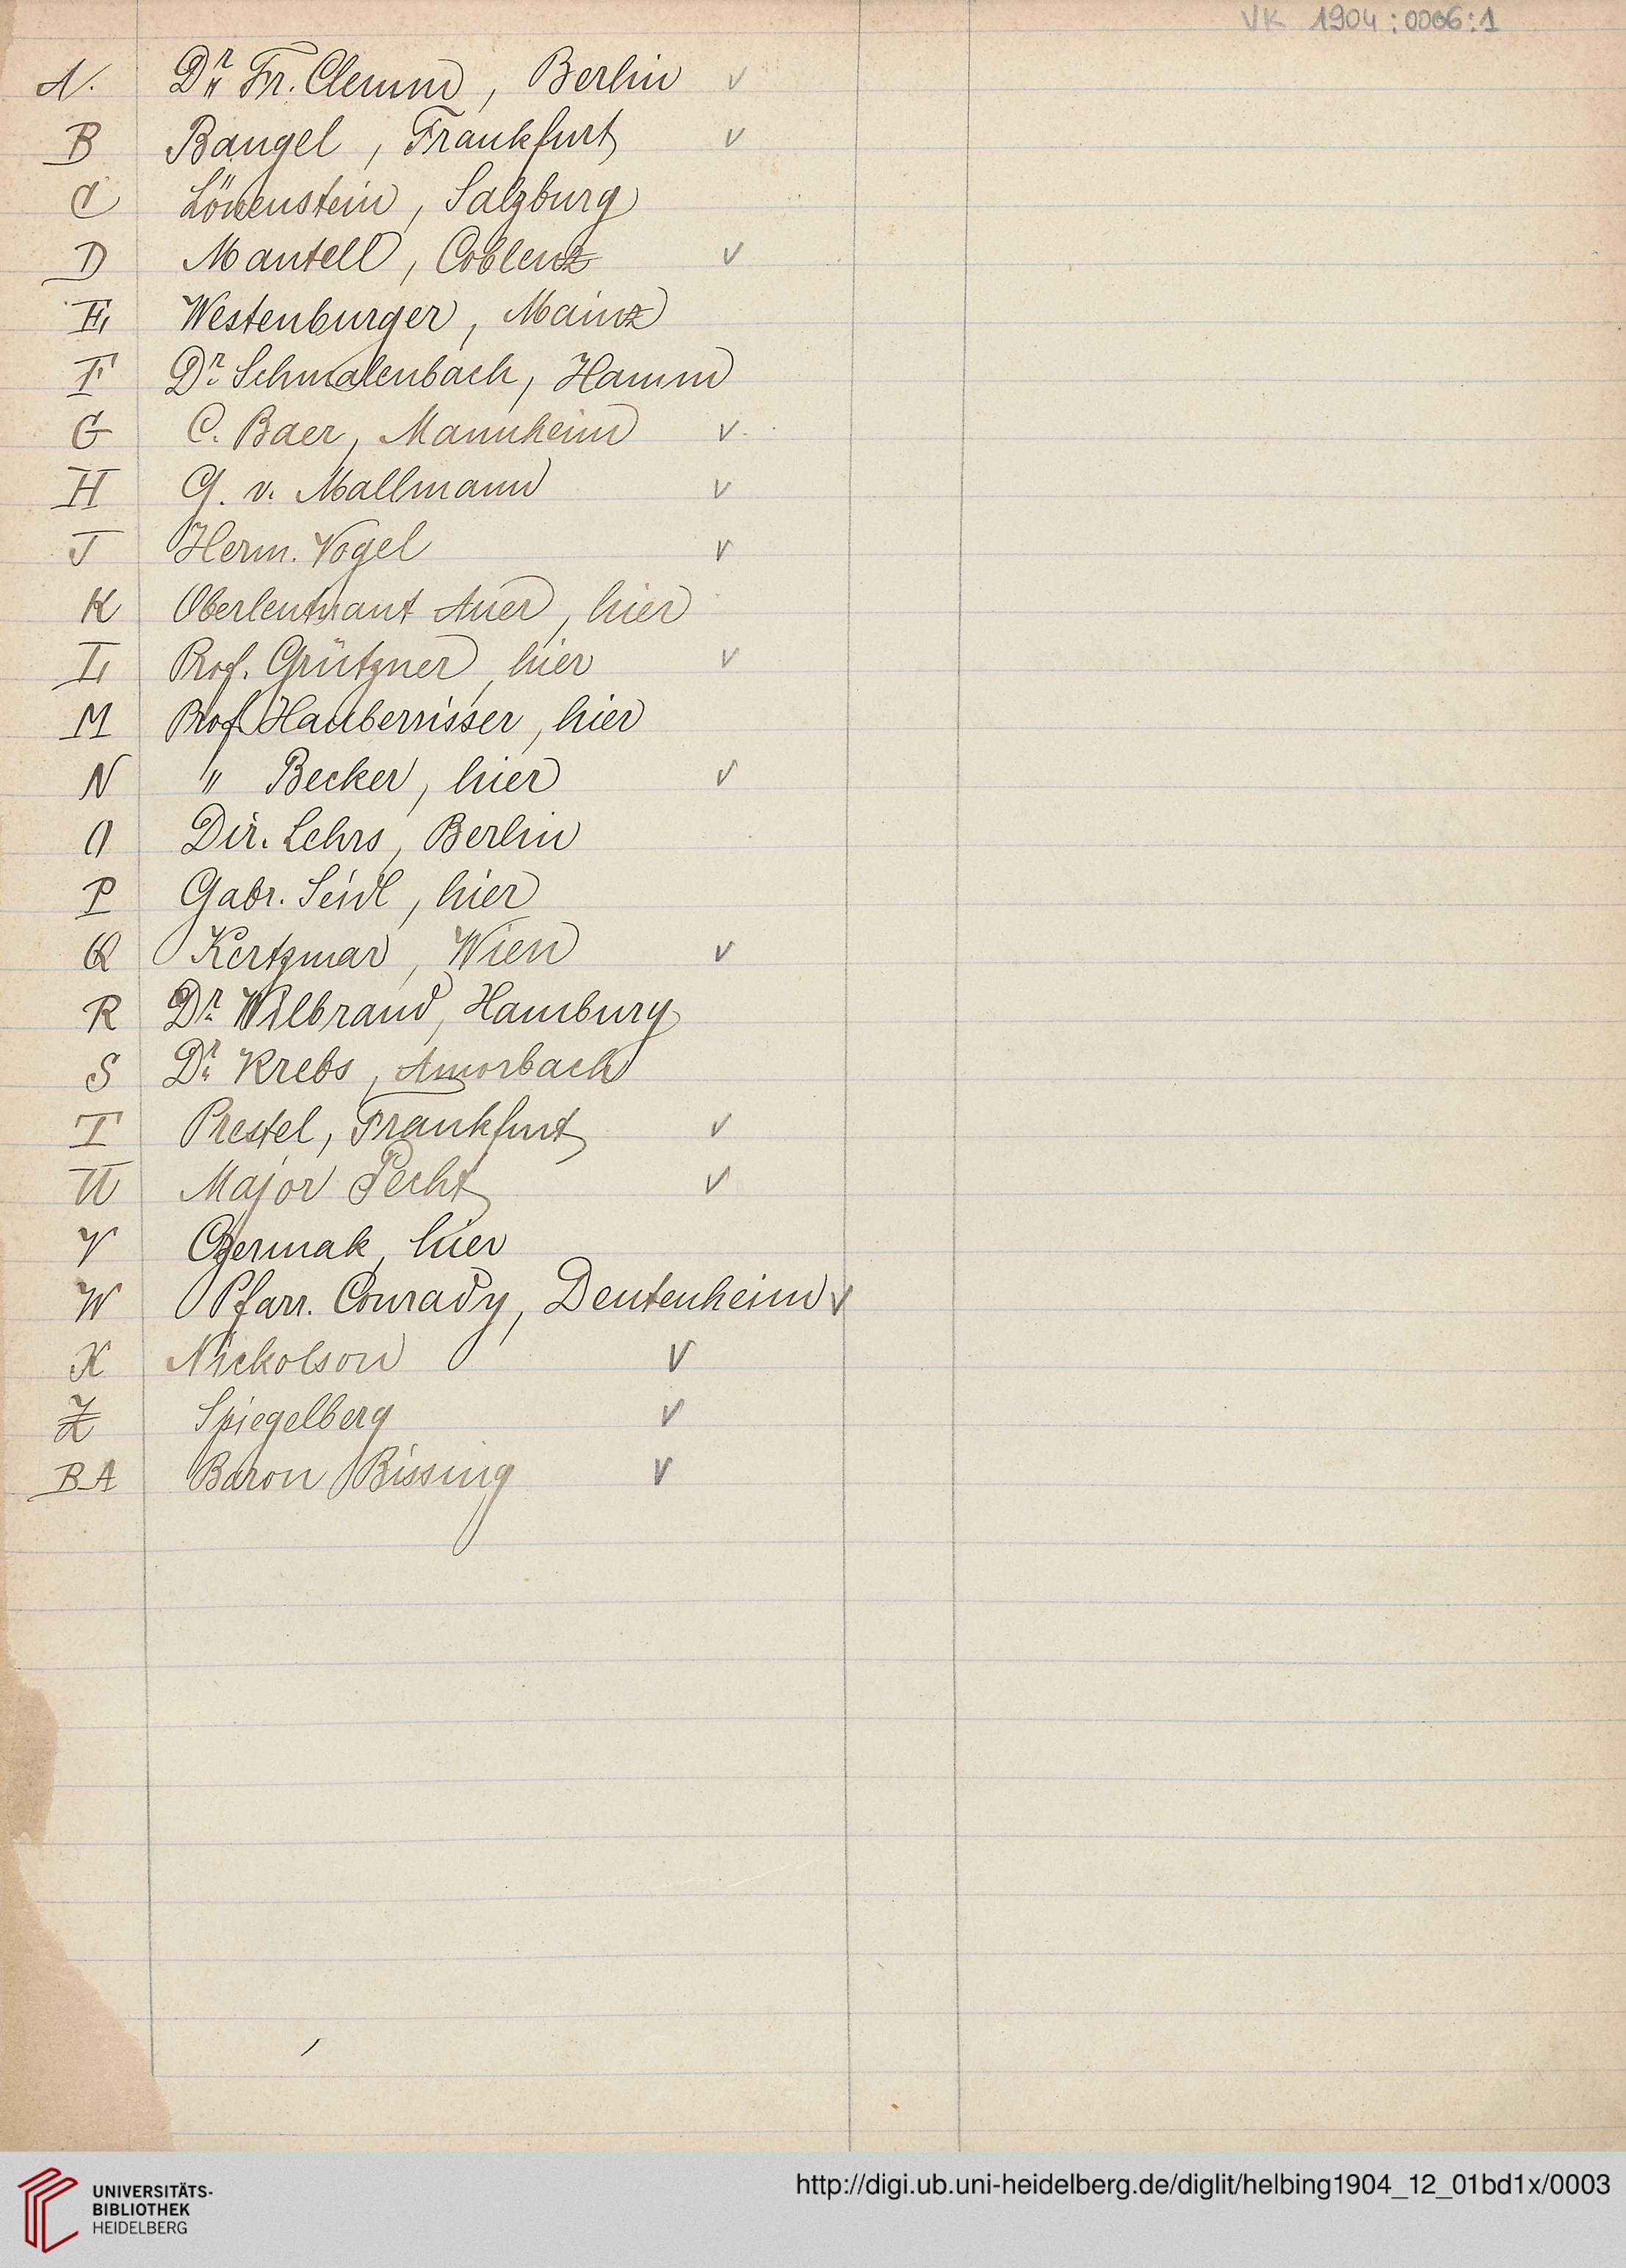 VK 1904:0006:1
A. Dr. Fr. Clemm, Berlin v
B Bangel, Frankfurt v
C Löwenstein, Salzburg
D Mantell, Coblenz v
E Westenburger, Mainz
F Dr. Schmalenbach, Hamm
G C. Baer, Mannheim v
H G. v. Mallmann v
J Herm. Vogel v
K Oberleutnant Auer, hier
L Prof. Grützner, hier v
M Prof Hauberrisser, hier
N " Becker, hier v
O Dir. Lehrs, Berlin
P Gabr. Seidl, hier
Q Kertzmar, Wien v
R Dr. Wilbrand, Hamburg
S Dr. Krebs, Amorbach
T Prestel, Frankfurt v
U Major Pecht v
V Czermak, hier
W Pfarr. Conrady, Deutenheim v
X Nickolson v
Z Spiegelberg v
BA Baron Bissing v
UNIVERSITÄTS-
BIBLIOTHEK
HEIDELBERG
http://digi.ub.uni-heidelberg.de/diglit/helbing1904_12_01bd1x/0003